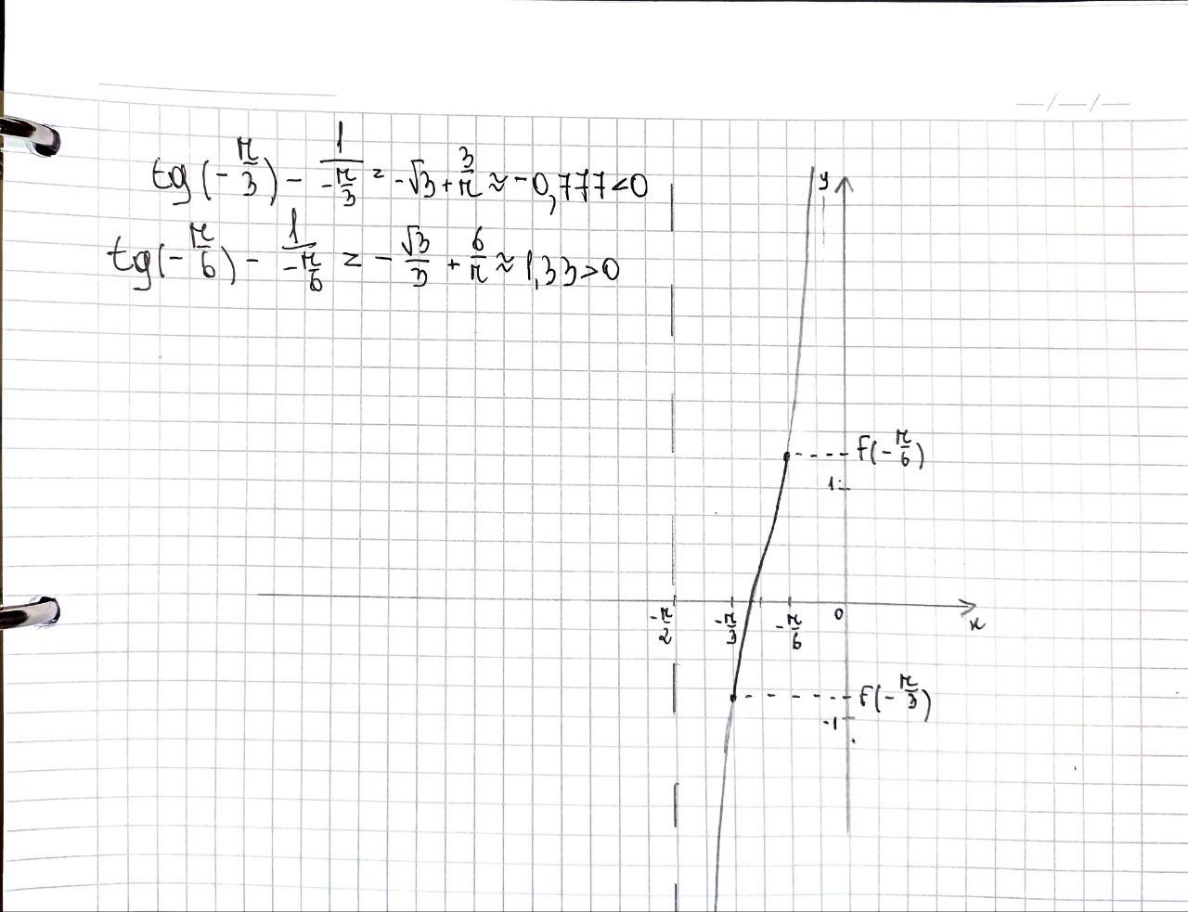 tg(-π/3) - 1/(-π/3) = -√3 + 3/π ≈ -0,777 < 0
tg(-π/6) - 1/(-π/6) = -√3/3 + 6/π ≈ 1,33 > 0
y
f(-π/6)
1
-π/2 -π/3 -π/6 0
x
f(-π/3)
-1